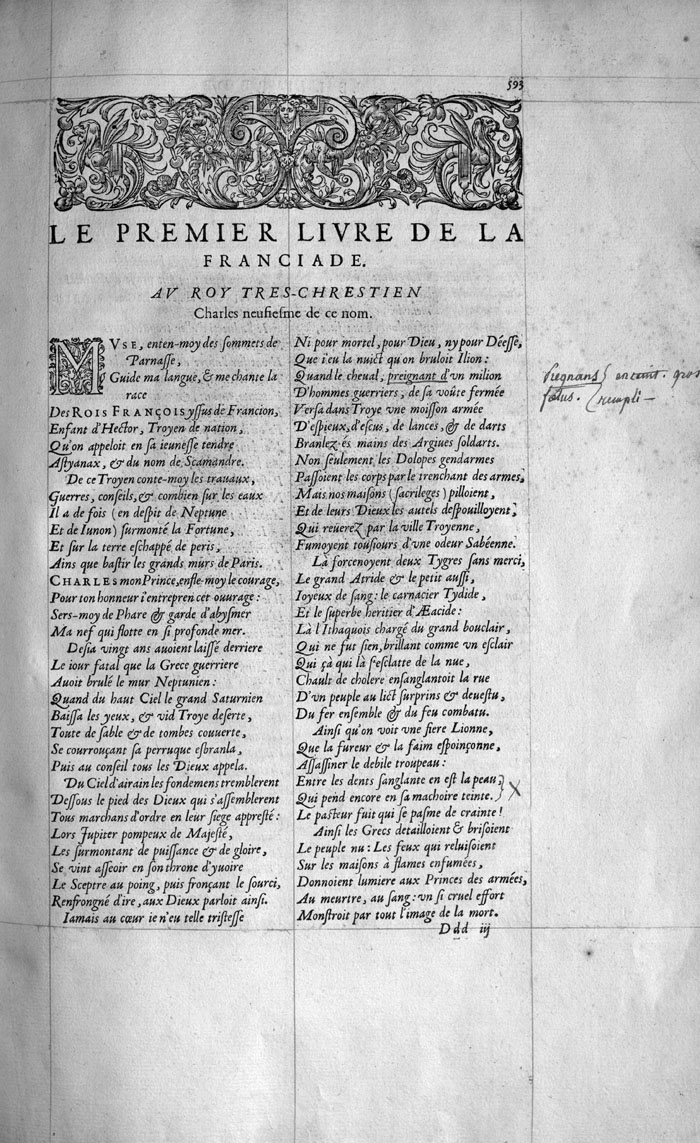 593
LE PREMIER LIVRE DE LA
FRANCIADE.
AV ROY TRES-CHRESTIEN
Charles neufiesme de ce nom.
MVSE, enten-moy des sommets de
Parnasse,
Guide ma langue, & me chante la
race
Des ROIS FRANÇOIS yssus de Francion,
Enfant d'Hector, Troyen de nation,
Qu'on appeloit en sa ieunesse tendre
Astyanax, & du nom de Scamandre.
De ce Troyen conte-moy les trauaux,
Guerres, conseils, & combien sur les eaux
Il a de fois (en despit de Neptune
Et de Iunon) surmonté la Fortune,
Et sur la terre eschappé de peris,
Ains que bastir les grands murs de Paris.
CHARLES mon Prince, enfle-moy le courage,
Pour ton honneur i'entrepren cet ouurage:
Sers-moy de Phare & garde d'abysmer
Ma nef qui flotte en si profonde mer.
Desia vingt ans auoient laissé derriere
Le iour fatal que la Grece guerriere
Auoit brulé le mur Neptunien:
Quand du haut Ciel le grand Saturnien
Baissa les yeux, & vid Troye deserte,
Toute de sable & de tombes couuerte,
Se courrouçant sa perruque esbranla,
Puis au conseil tous les Dieux appela.
Du Ciel d'airain les fondemens tremblerent
Dessous le pied des Dieux qui s'assemblerent
Tous marchans d'ordre en leur siege appresté:
Lors Jupiter pompeux de Majesté,
Les surmontant de puissance & de gloire,
Se vint asseoir en son throne d'yuoire
Le Sceptre au poing, puis fronçant le sourci,
Renfrongné d'ire, aux Dieux parloit ainsi.
Iamais au cœur ie n'eu telle tristesse
Ni pour mortel, pour Dieu, ny pour Déesse,
Que i'eu la nuict qu'on bruloit Ilion:
Quand le cheual, preignant d'vn milion
D'hommes guerriers, de sa voûte fermée
Versa dans Troye vne moisson armée
D'espieux, d'escus, de lances, & de darts
Branlez és mains des Argiues soldarts.
Non seulement les Dolopes gendarmes
Passoient les corps par le trenchant des armes,
Mais nos maisons (sacrileges) pilloient,
Et de leurs Dieux les autels despouilloyent,
Qui reuerez par la ville Troyenne,
Fumoyent tousiours d'vne odeur Sabéenne.
Là forcenoyent deux Tygres sans merci,
Le grand Atride & le petit aussi,
Ioyeux de sang: le carnacier Tydide,
Et le superbe heritier d'Æacide:
Là l'Ithaquois chargé du grand bouclair,
Qui ne fut sien, brillant comme vn esclair
Qui çà qui là s'esclatte de la nue,
Chault de cholere ensanglantoit la rue
D'vn peuple au lict surprins & deuestu,
Du fer ensemble & du feu combatu.
Ainsi qu'on voit vne fiere Lionne,
Que la fureur & la faim espoinçonne,
Assassiner le debile troupeau:
Entre les dents sanglante en est la peau,
Qui pend encore en sa machoire teinte.
Le pasteur fuit qui se pasme de crainte!
Ainsi les Grecs detailloient & brisoient
Le peuple nu: Les feux qui reluisoient
Sur les maisons à flames enfumées,
Donnoient lumiere aux Princes des armées,
Au meurtre, au sang: vn si cruel effort
Monstroit par tout l'image de la mort.
Ddd iij
Pregnans enceint. gros
fœtus. rempli –
X